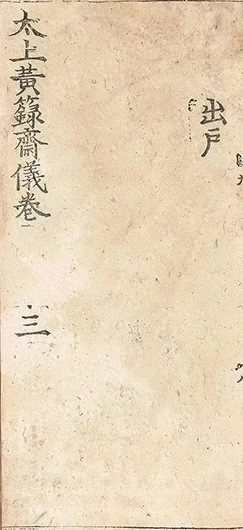 出戶
太上黃籙齋儀卷
三